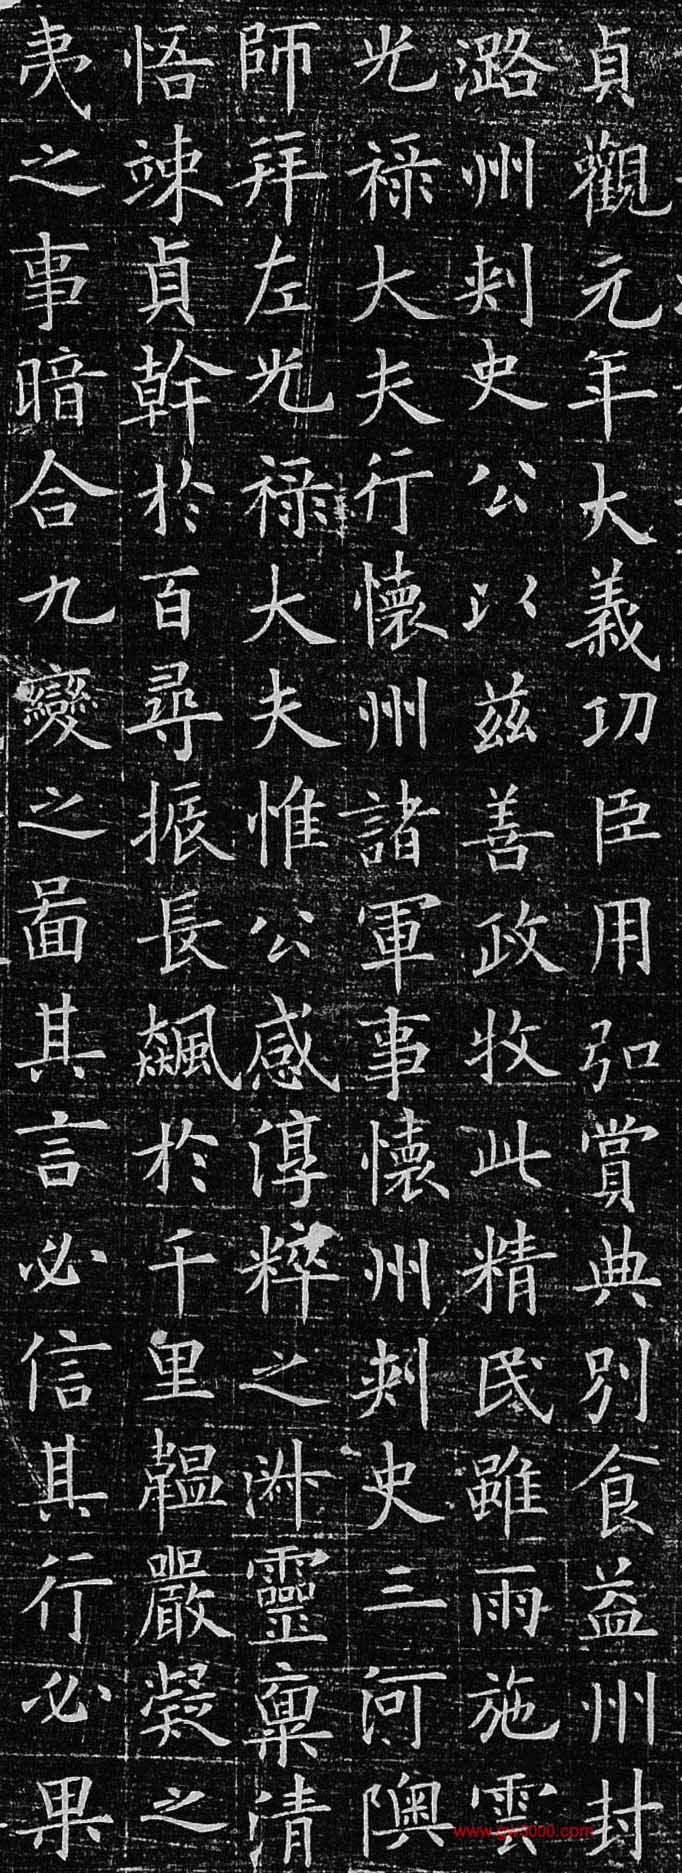 貞觀元年大義功臣用弘賞典別食益州封
潞州刺史公以茲善政牧此精民雖雨施雲
光祿大夫行懷州諸軍事懷州刺史三河隩
師拜左光祿大夫惟公感淳粹之淋靈稟清
悟竦貞幹於百尋振長飆於千里韞嚴凝之
夷之事暗合九變之圖其言必信其行必果
www.gw3000.com